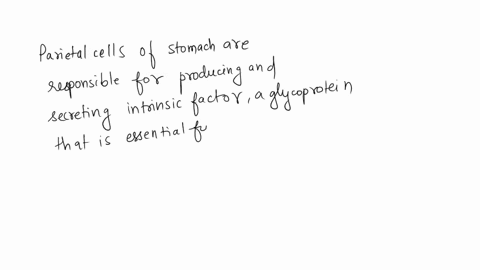 Parietal cells of stomach are
responsible for producing and
secreting intrinsic factor, a glycoprotein
that is essential fo